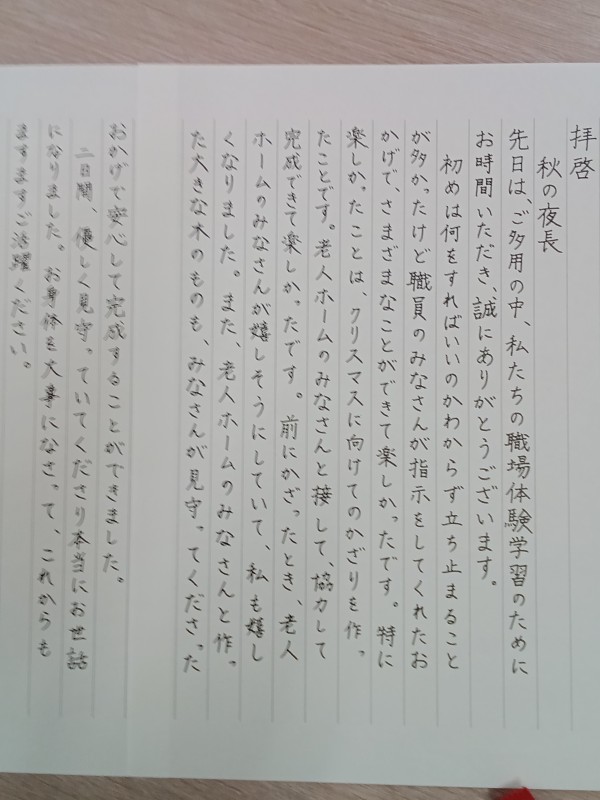 拝啓
秋の夜長
先日は、ご多用の中、私たちの職場体験学習のために
お時間いただき、誠にありがとうございます。
初めは何をすればいいのかわからず立ち止まること
が多かったけど職員のみなさんが指示をしてくれたお
かげで、さまざまなことができて楽しかったです。特に
楽しかったことは、クリスマスに向けてのかざりを作っ
たことです。老人ホームのみなさんと接して、協力して
完成できて楽しかったです。前にかざったとき、老人
ホームのみなさんが嬉しそうにしていて、私も嬉し
くなりました。また、老人ホームのみなさんと作っ
た大きな木のものも、みなさんが見守ってくださった
おかげで安心して完成することができました。
二日間、優しく見守っていてくださり本当にお世話
になりました。お身体を大事になさって、これからも
ますますご活躍ください。